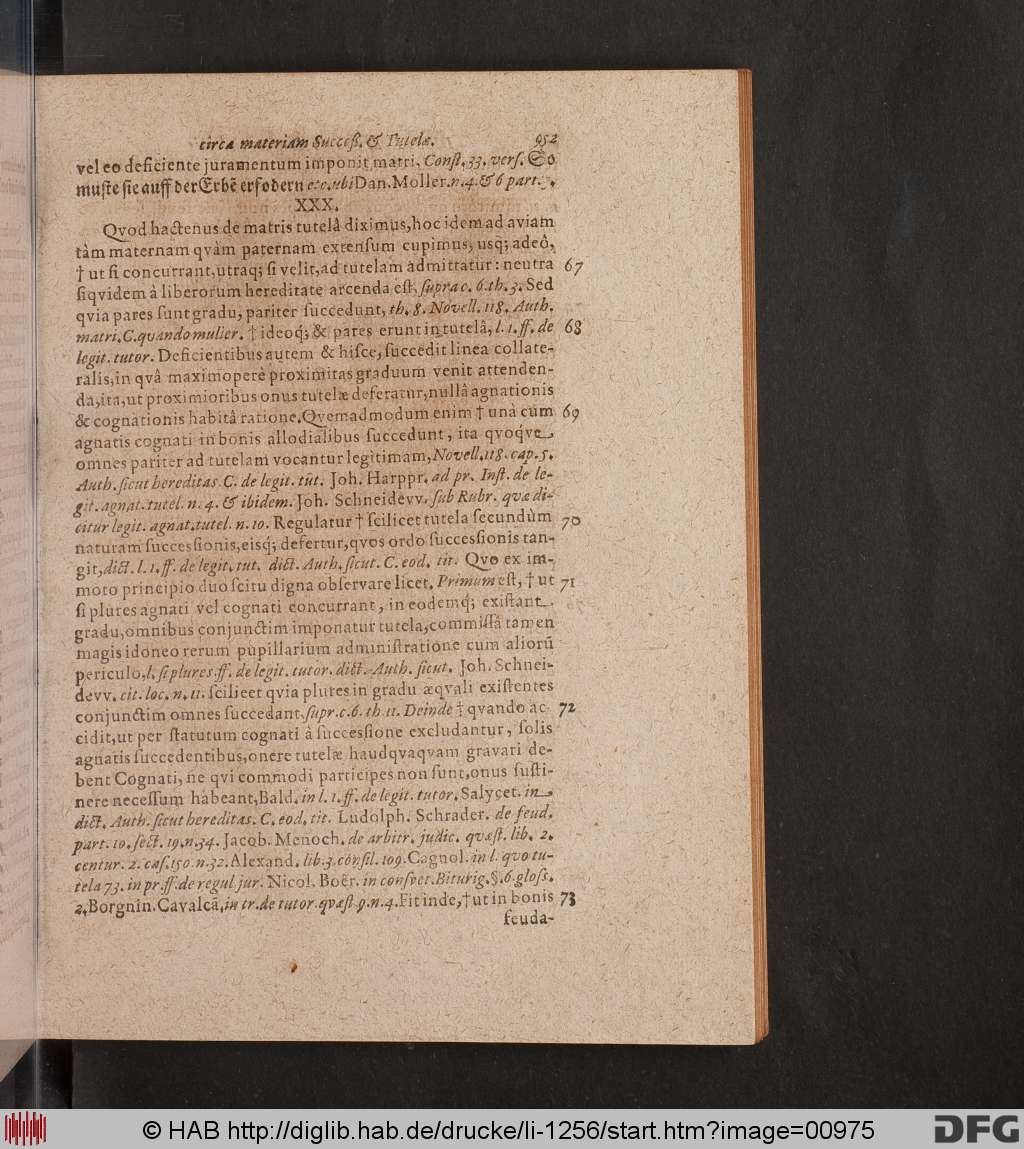 circa materiam Success. & Tutelæ. 952
vel eo deficiente juramentum imponit matri, Const. 33. vers. So
muste sie auff der Erbē erfodern etc. ubi Dan. Moller. n. 4. & 6 part.
XXX.
Qvod hactenus de matris tutelâ diximus, hoc idem ad aviam
tàm maternam qvàm paternam extensum cupimus, usq; adeò,
† ut si concurrant, utraq; si velit, ad tutelam admittatur: neutra 67
siqvidem à liberorum hereditate arcenda est, supra c. 6. th. 3. Sed
qvia pares sunt gradu, pariter succedunt, th. 8. Novell. 118. Auth.
matri. C. quando mulier. † ideoq; & pares erunt in tutelâ, l. 1. ff. de 68
legit. tutor. Deficientibus autem & hisce, succedit linea collate-
ralis, in qvâ maximoperè proximitas graduum venit attenden-
da, ita, ut proximioribus onus tutelæ deferatur, nullâ agnationis
& cognationis habitâ ratione. Qvemadmodum enim † unà cum 69
agnatis cognati in bonis allodialibus succedunt, ita qvoq́ve
omnes pariter ad tutelam vocantur legitimam, Novell. 118. cap. 5.
Auth. sicut hereditas C. de legit. tut. Joh. Harppr. ad pr. Inst. de le-
git. agnat. tutel. n. 4. & ibidem. Joh. Schneidevv. sub Rubr. quæ di-
citur legit. agnat. tutel. n. 10. Regulatur † scilicet tutela secundùm 70
naturam successionis, eisq; defertur, qvos ordo successionis tan-
git, dict. l. 1. ff. de legit. tut. dict. Auth. sicut. C. eod. tit. Qvo ex im-
moto principio duo scitu digna observare licet. Primum est, † ut 71
si plures agnati vel cognati concurrant, in eodemq; existant
gradu, omnibus conjunctim imponatur tutela, commissâ tamen
magis idoneo rerum pupillarium administratione cum aliorū
periculo, l. si plures ff. de legit. tutor. dict. Auth. sicut. Joh. Schnei-
devv. cit. loc. n. 11. scilicet qvia plures in gradu æqvali existentes
conjunctim omnes succedant, supr. c. 6. th 11. Deinde † qvando ac- 72
cidit, ut per statutum cognati à successione excludantur, solis
agnatis succedentibus, onere tutelæ haudqvaqvam gravari de-
bent Cognati, ne qvi commodi participes non sunt, onus susti-
nere necessum habeant, Bald. in l. 1. ff. de legit. tutor. Salycet. in
dict. Auth. sicut hereditas. C. eod. tit. Ludolph. Schrader. de feud.
part. 10. sect. 19. n. 34. Jacob. Menoch. de arbitr. judic. quæst. lib. 2.
centur. 2. cas. 150. n. 32. Alexand. lib. 3. consil. 109. Cagnol. in l. quo tu-
tela 73. in pr. ff. de regul jur. Nicol. Boër. in consvet. Biturig. §. 6 gloss.
2. Borgnin. Cavalcā, in tr. de tutor. quæst 9. n. 4. Fit inde, † ut in bonis 73
feuda-
© HAB http://diglib.hab.de/drucke/li-1256/start.htm?image=00975
DFG